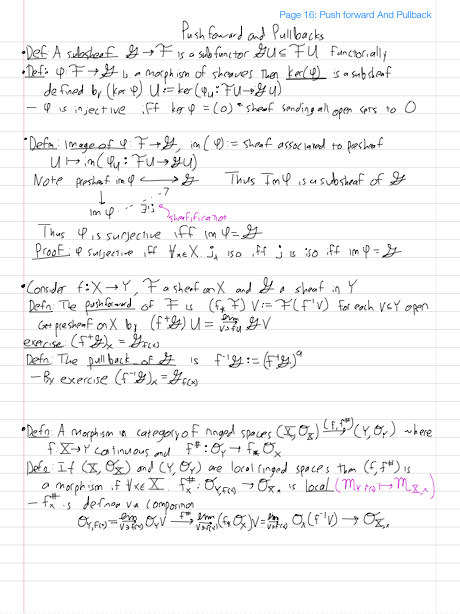 Page 16: Push forward And Pullback
Push forward and Pullbacks
• Def: A subsheaf 𝒢 → ℱ is a subfunctor 𝒢U ⊆ ℱU functorially
• Def: φ: ℱ → 𝒢 is a morphism of sheaves then ker(φ) is a subsheaf
defined by (ker φ) U := ker (φ_U: ℱU → 𝒢U)
– φ is injective iff ker φ = (0) ← sheaf sending all open sets to 0
• Defn: Image of φ: ℱ → 𝒢, im(φ) := sheaf associated to presheaf
U ↦ im(φ_U: ℱU → 𝒢U)
Note presheaf im φ ⟷ 𝒢 Thus Im φ is a subsheaf of 𝒢
↓ ⇢
im φ ⋯ ∃! j sheafification
Thus φ is surjective iff im φ = 𝒢
Proof: φ surjective iff ∀x∈X. j_x iso iff j is iso iff im φ = 𝒢
• Consider f: X → Y, ℱ a sheaf on X and 𝒢 a sheaf in Y
Defn: The pushforward of ℱ is (f_* ℱ) V := ℱ(f⁻¹V) for each V⊆Y open
Get presheaf on X by (f⁺𝒢) U = lim_{V⊇fU} 𝒢V
exercise: (f⁺𝒢)_x = 𝒢_{f(x)}
Defn: The pullback of 𝒢 is f⁻¹𝒢 := (f⁺𝒢)^a
– By exercise (f⁻¹𝒢)_x = 𝒢_{f(x)}
• Defn: A morphism in category of ringed spaces (X, O_X) →^{(f, f^#)} (Y, O_Y) where
f: X → Y continuous and f^#: O_Y → f_* O_X
Defn: If (X, O_X) and (Y, O_Y) are local ringed spaces then (f, f^#) is
a morphism if ∀x∈X f_x^#: O_{Y,f(x)} → O_{X,x} is local (m_{Y,f(x)} ↦ m_{X,x})
– f_x^# is defined via composition
O_{Y,f(x)} = lim_{V∋f(x)} O_Y V →^{f^#} lim_{V∋f(x)} (f_* O_X)V = lim_{V∋f(x)} O_X(f⁻¹V) → O_{X,x}